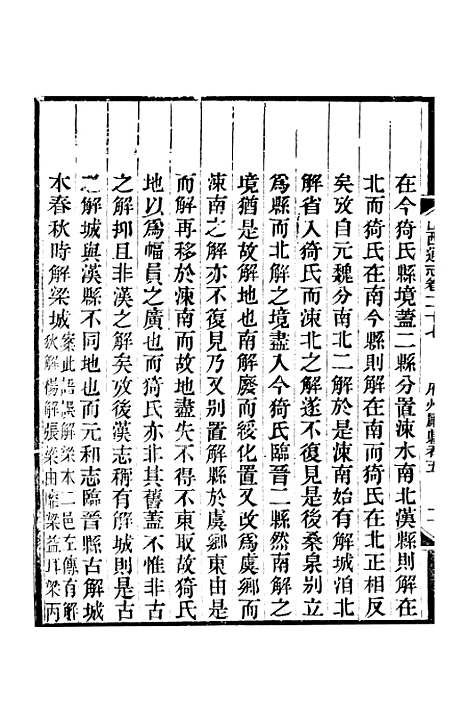 山西通志卷二十七
府州厅县考五
二
在今猗氏縣境蓋二縣分置涑水南北漢縣則解在
北而猗氏在南今縣則解在南而猗氏在北正相反
矣攷自元魏分南北二解於是涑南始有解城洎北
解省入猗氏而涑北之解遂不復見是後桑泉别立
爲縣而北解之境盡入今猗氏臨晉二縣然南解之
境猶是故解地也南解廢而綏化置又改爲虞鄉而
涑南之解亦不復見乃又别置解縣於虞鄉東由是
而解再移於涑南而故地盡失不得不東取故猗氏
地以爲幅員之廣也而猗氏亦非其舊蓋不惟非古
之解抑且非漢之解矣攷後漢志稱有解城則是古
之解城與漢縣不同地也而元和志臨晉縣古解城
本春秋時解梁城案此語誤解梁本二邑左傳有解
狄解傷解張梁由靡梁益耳梁丙